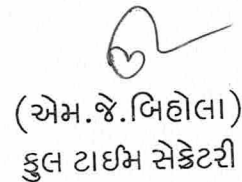 (એમ.જે.બિહોલા)
ફુલ ટાઈમ સેક્રેટરી